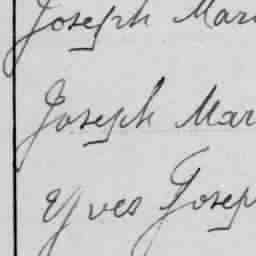 Joseph Mar
Joseph Mar
Yves Josep